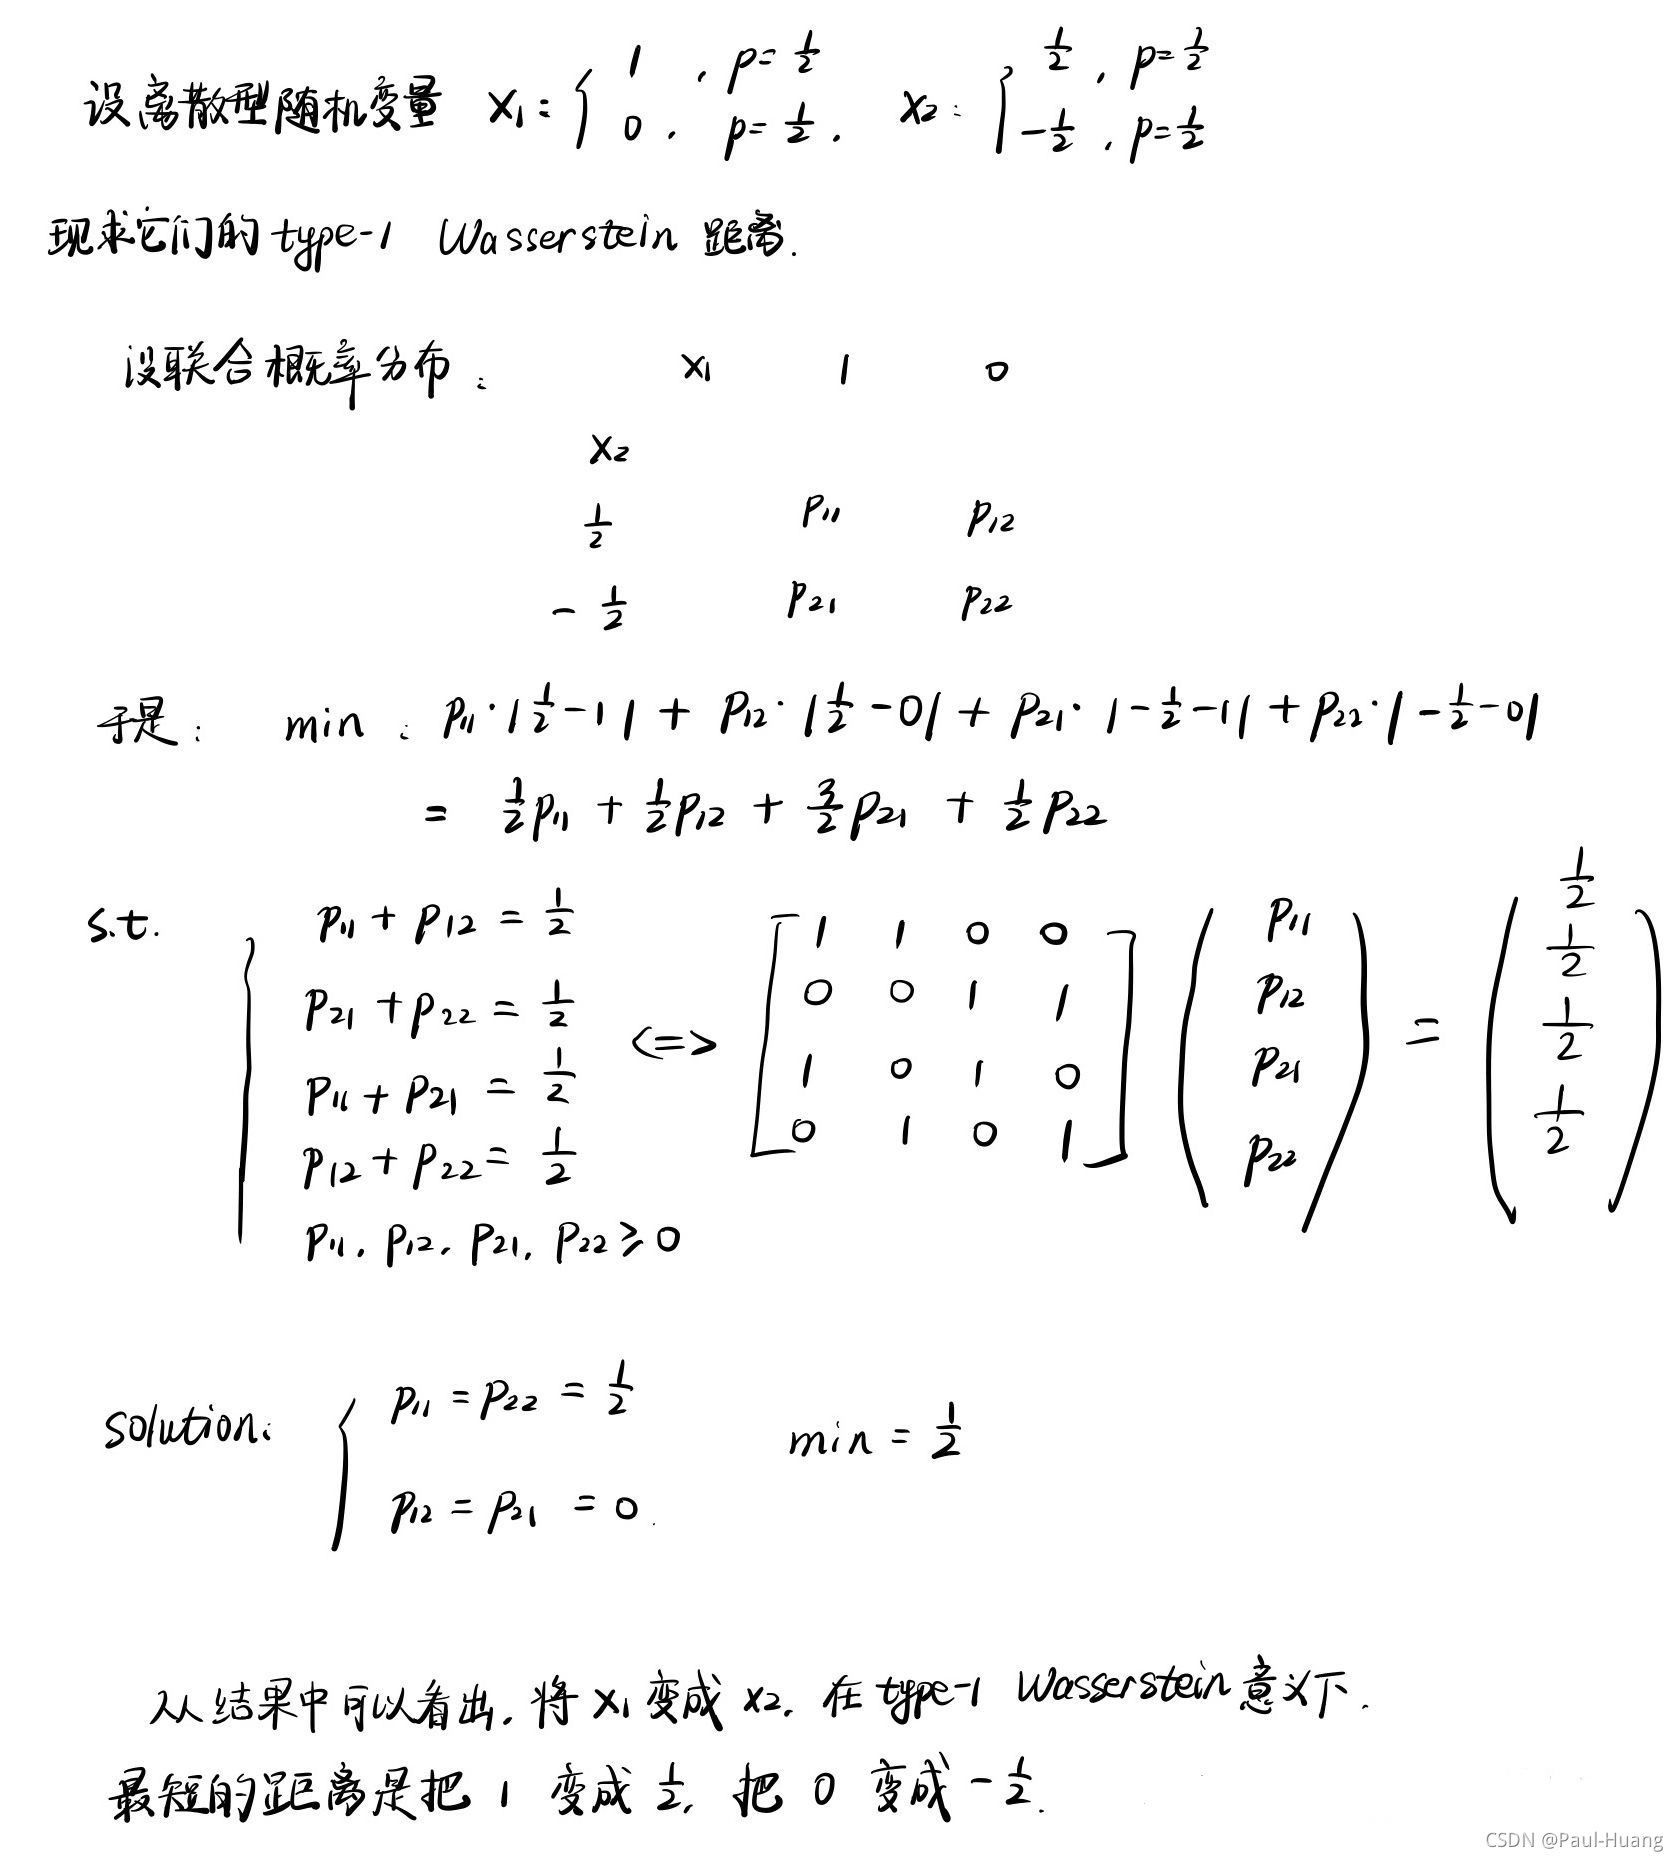 设离散型随机变量 X₁: { 1 , p=1/2 0 , p=1/2 . X₂: { 1/2 , p=1/2 -1/2 , p=1/2
现求它们的 type-1 Wasserstein 距离.
设联合概率分布: X₁ 1 0
X₂
1/2 P₁₁ P₁₂
-1/2 P₂₁ P₂₂
于是: min: P₁₁·|1/2-1| + P₁₂·|1/2-0| + P₂₁·|-1/2-1| + P₂₂·|-1/2-0|
= 1/2P₁₁ + 1/2P₁₂ + 3/2P₂₁ + 1/2P₂₂
s.t. { P₁₁ + P₁₂ = 1/2
P₂₁ + P₂₂ = 1/2
P₁₁ + P₂₁ = 1/2
P₁₂ + P₂₂ = 1/2
P₁₁, P₁₂, P₂₁, P₂₂ ≥ 0
<=> [ 1 1 0 0
0 0 1 1
1 0 1 0
0 1 0 1 ]
( P₁₁
P₁₂
P₂₁
P₂₂ )
= ( 1/2
1/2
1/2
1/2 )
solution: { P₁₁ = P₂₂ = 1/2 min = 1/2
P₁₂ = P₂₁ = 0.
从结果中可以看出, 将 X₁ 变成 X₂, 在 type-1 Wasserstein 意义下.
最短的距离是把 1 变成 1/2, 把 0 变成 -1/2.
CSDN @Paul-Huang